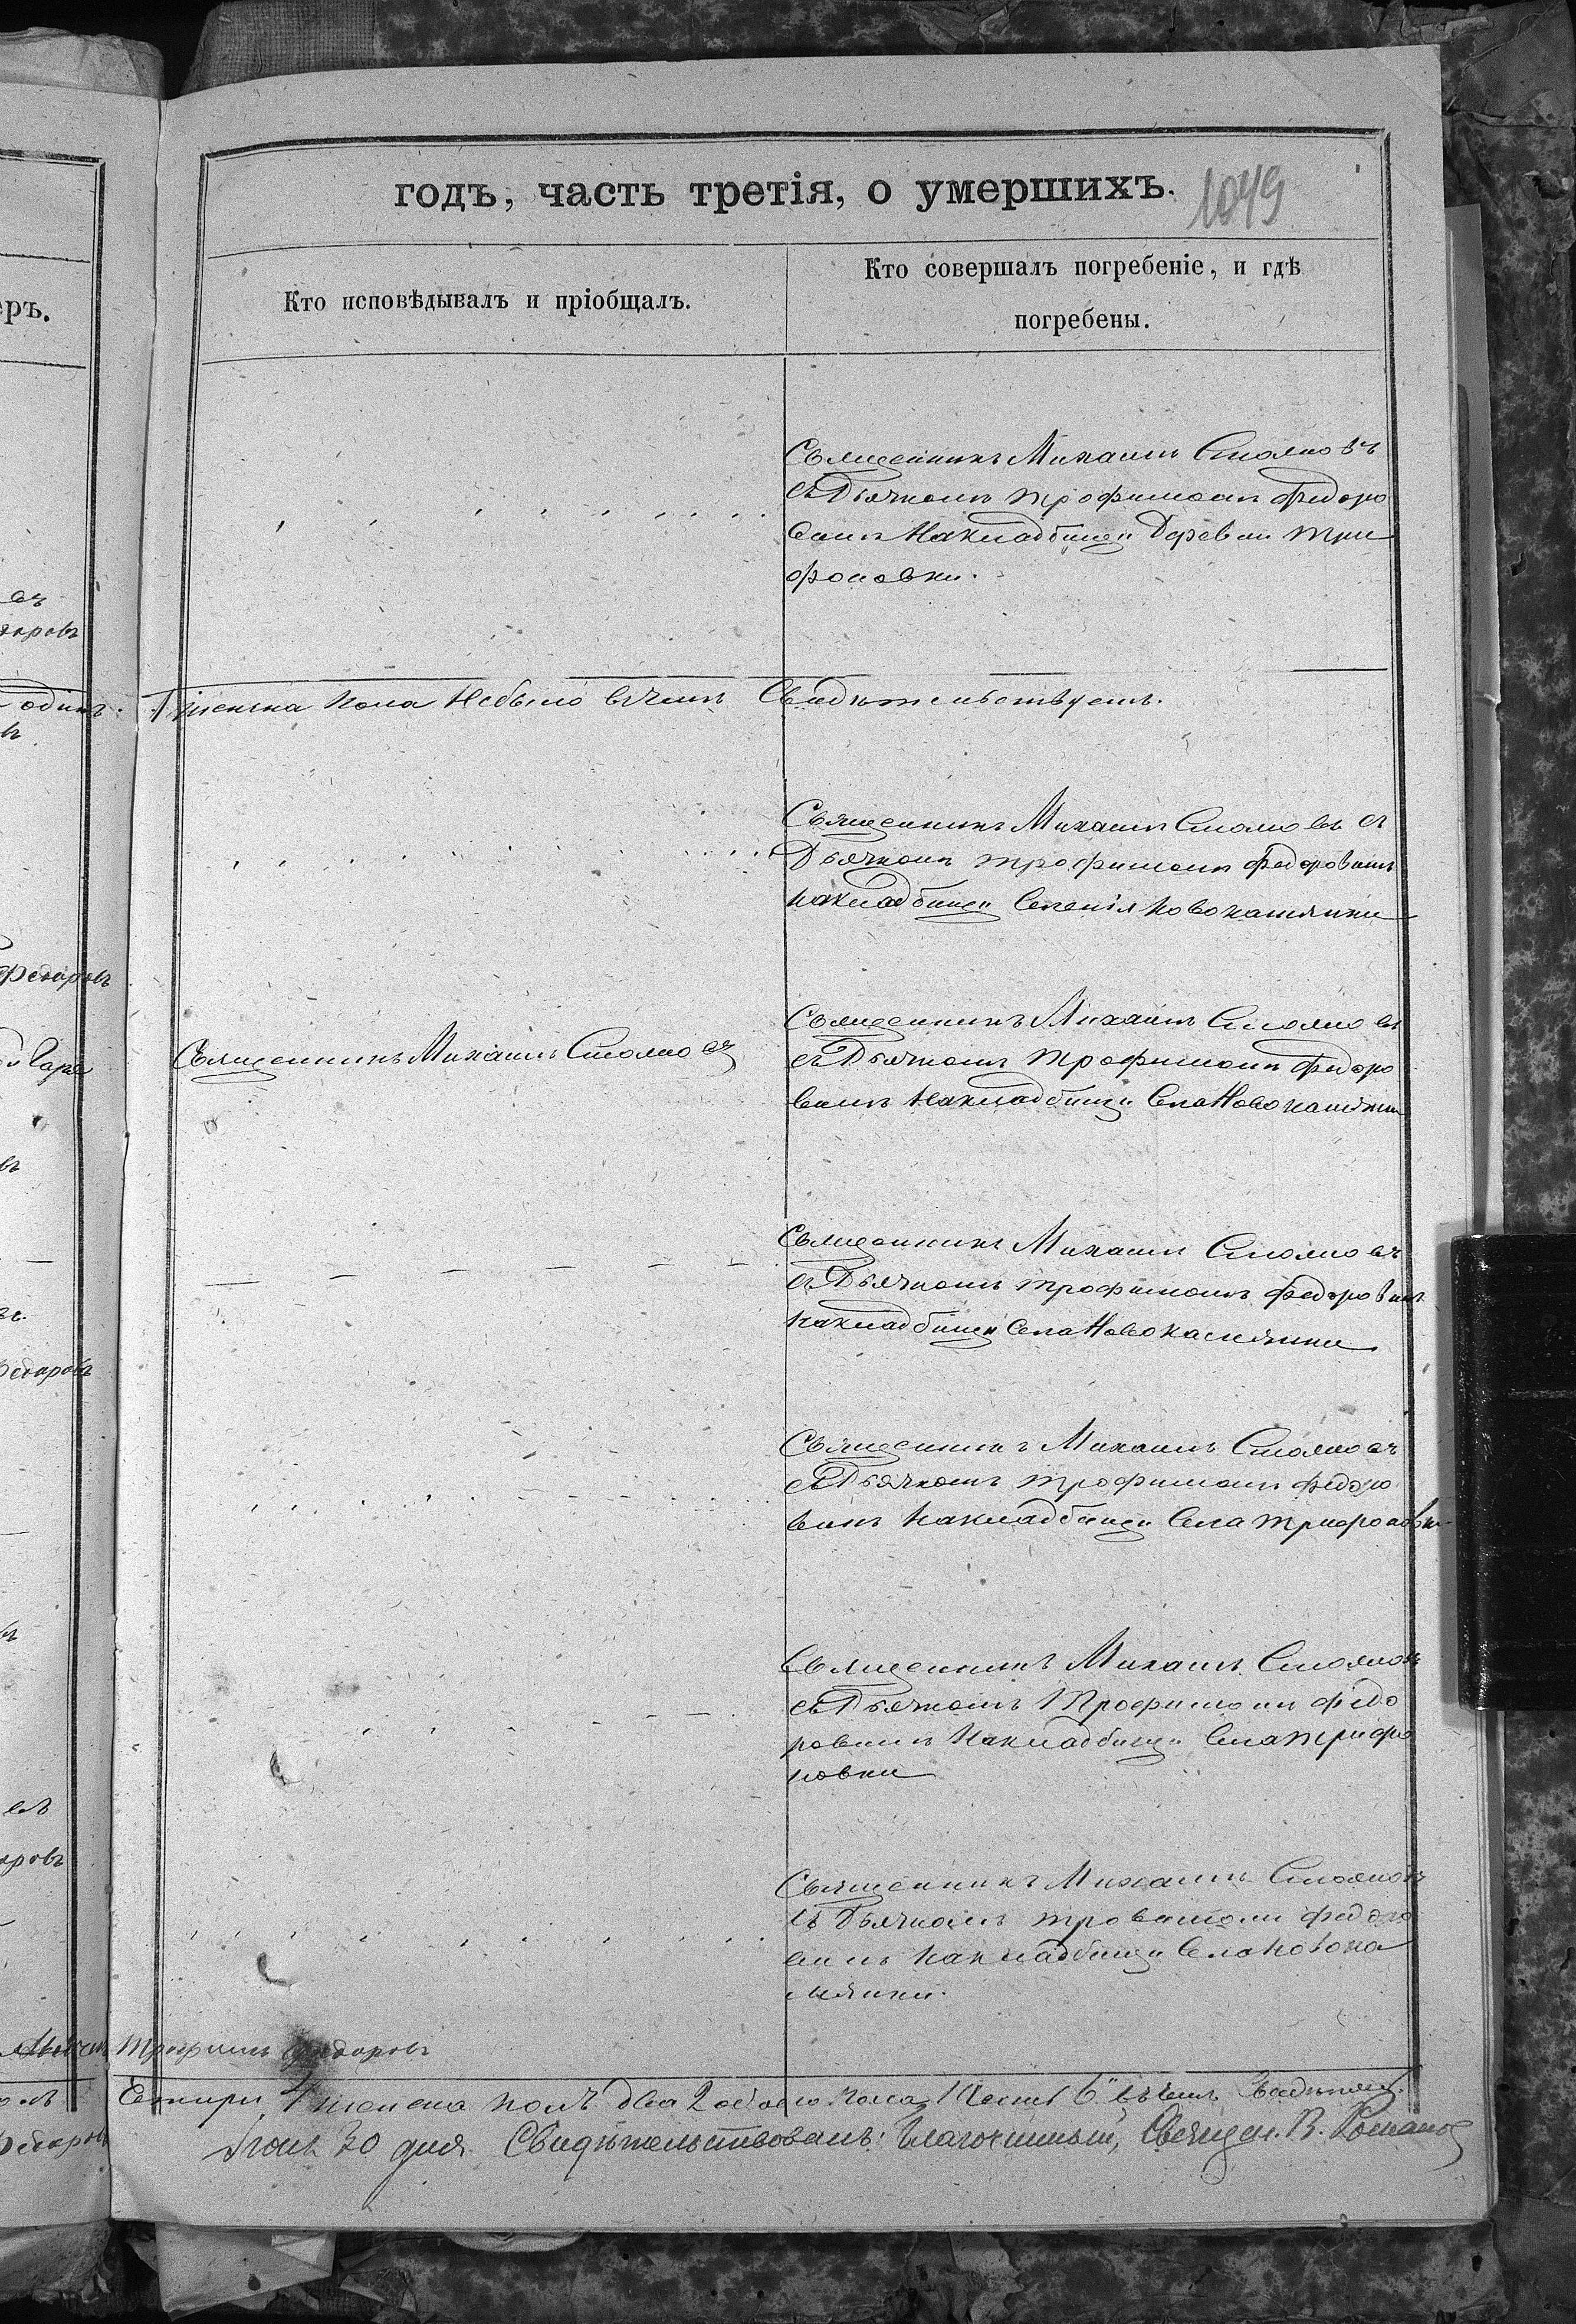 годъ, часть третія, о умершихъ.
1049
еръ.
Кто исповѣдывалъ и пріобщалъ.
Кто совершалъ погребеніе, и гдѣ
погребены.
Священникъ Михаилъ Стояновъ
съ Дьячкомъ Трофимомъ Федоро
вымъ На кладбищи Деревни Три
фоновки.
одинъ.
женска пола Небыло въ чемъ Свидѣтельствуемъ.
Священникъ Михаилъ Стояновъ съ
Дьячкомъ Трофимомъ Федоровымъ
на кладбищи Селенія Новокаменки
Федоровъ
Священникъ Михаилъ Стояновъ
Священникъ Михаилъ Стояновъ
съ Дьячкомъ Трофимомъ Федоро
вымъ На кладбищи Села Новокаменки
Священникъ Михаилъ Стояновъ
съ Дьячкомъ Трофимомъ Федоровымъ
На кладбищи Села Новокаменки
Федоровъ
Священникъ Михаилъ Стояновъ
съ Дьячкомъ Трофимомъ Федоро
вымъ На кладбищи Села Трифоновки
Священникъ Михаилъ Стояновъ
съ Дьячкомъ Трофимомъ Федо
ровымъ На кладбищи Села Трифо
новки
Священникъ Михаилъ Стояновъ
съ Дьячкомъ Федоро
вымъ На кладбищи Села Новока
менки.
Трофимъ Федоровъ
женска полъ два 2 обаего пола 6 въ чемъ
30 дня Свидѣтельствовалъ: Благочинный, Священ. В. Романов